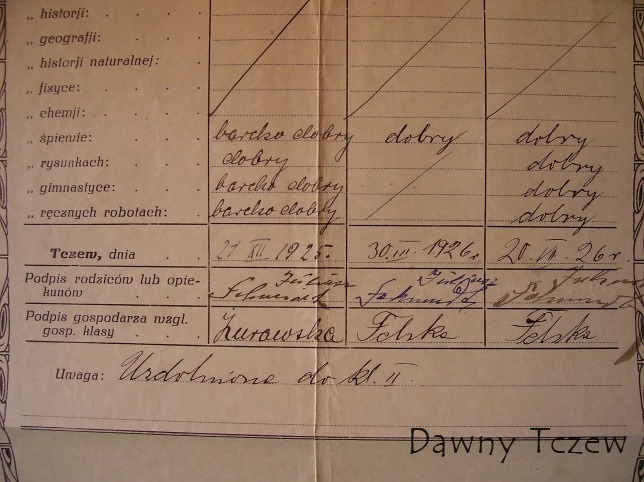 „ historji: . . . .
„ geografji: . . . .
„ historji naturalnej: . .
„ fizyce: . . . .
„ chemji: . . . .
„ śpiewie: . . . . bardzo dobry dobry dobry
„ rysunkach: . . . dobry dobry
„ gimnastyce: . . . bardzo dobry dobry
„ ręcznych robotach: . . bardzo dobry dobry
Tczew, dnia . . 21 XII 1925. 30. III 1926 r. 20. VI. 26 r.
Podpis rodziców lub opie-
kunów . . .
Podpis gospodarza wzgl.
gosp. klasy . . Żurawska Felska Felska
Uwaga: Uzdolniona do kl. II.
Dawny Tczew